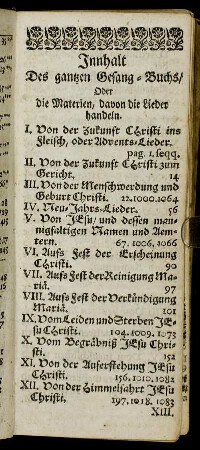 Jnnhalt
Des gantzen Gesang-Buchs/
Oder
die Materien, davon die Lieder
handeln.
I. Von der Zukunft CHristi ins
Fleisch, oder Advents-Lieder.
pag. 1. seqq.
II. Von der Zukunft CHristi zum
Gericht. 14
III. Von der Menschwerdung und
Geburt Christi. 22. 1000. 1064
IV. Neu-Jahrs-Lieder. 56
V. Von JEsu, und dessen man-
nigfaltigen Namen und Aem-
tern. 67. 1006, 1066
VI. Aufs Fest der Erscheinung
CHristi. 90
VII. Aufs Fest der Reinigung Ma-
riä. 97
VIII. Aufs Fest der Verkündigung
Mariä. 101
IX. Vom Leiden und Sterben JE-
su CHristi. 104. 1009. 1073
X. Vom Begräbniß JEsu Chri-
sti. 152
XI. Von der Auferstehung JEsu
Christi. 156, 1010. 1082
XII. Von der Himmelfahrt JEsu
CHristi. 197, 1018. 1083
XIII.